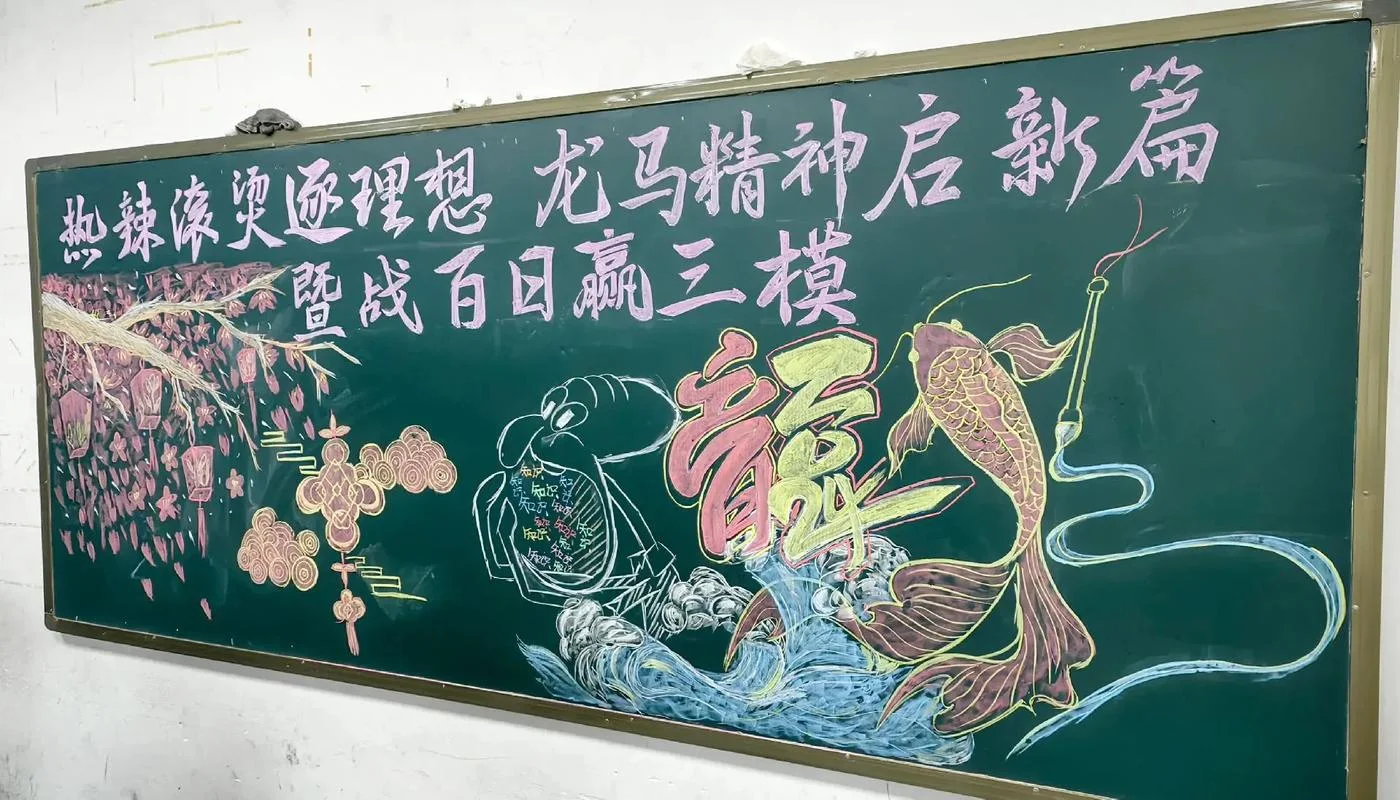 热辣滚烫逐理想 龙马精神启新篇
暨战百日赢三模
龍
2024
知识
知识 知识 知识
知识 知识
知识 知识
知识 知识 知识
知识 知识
知识 知识